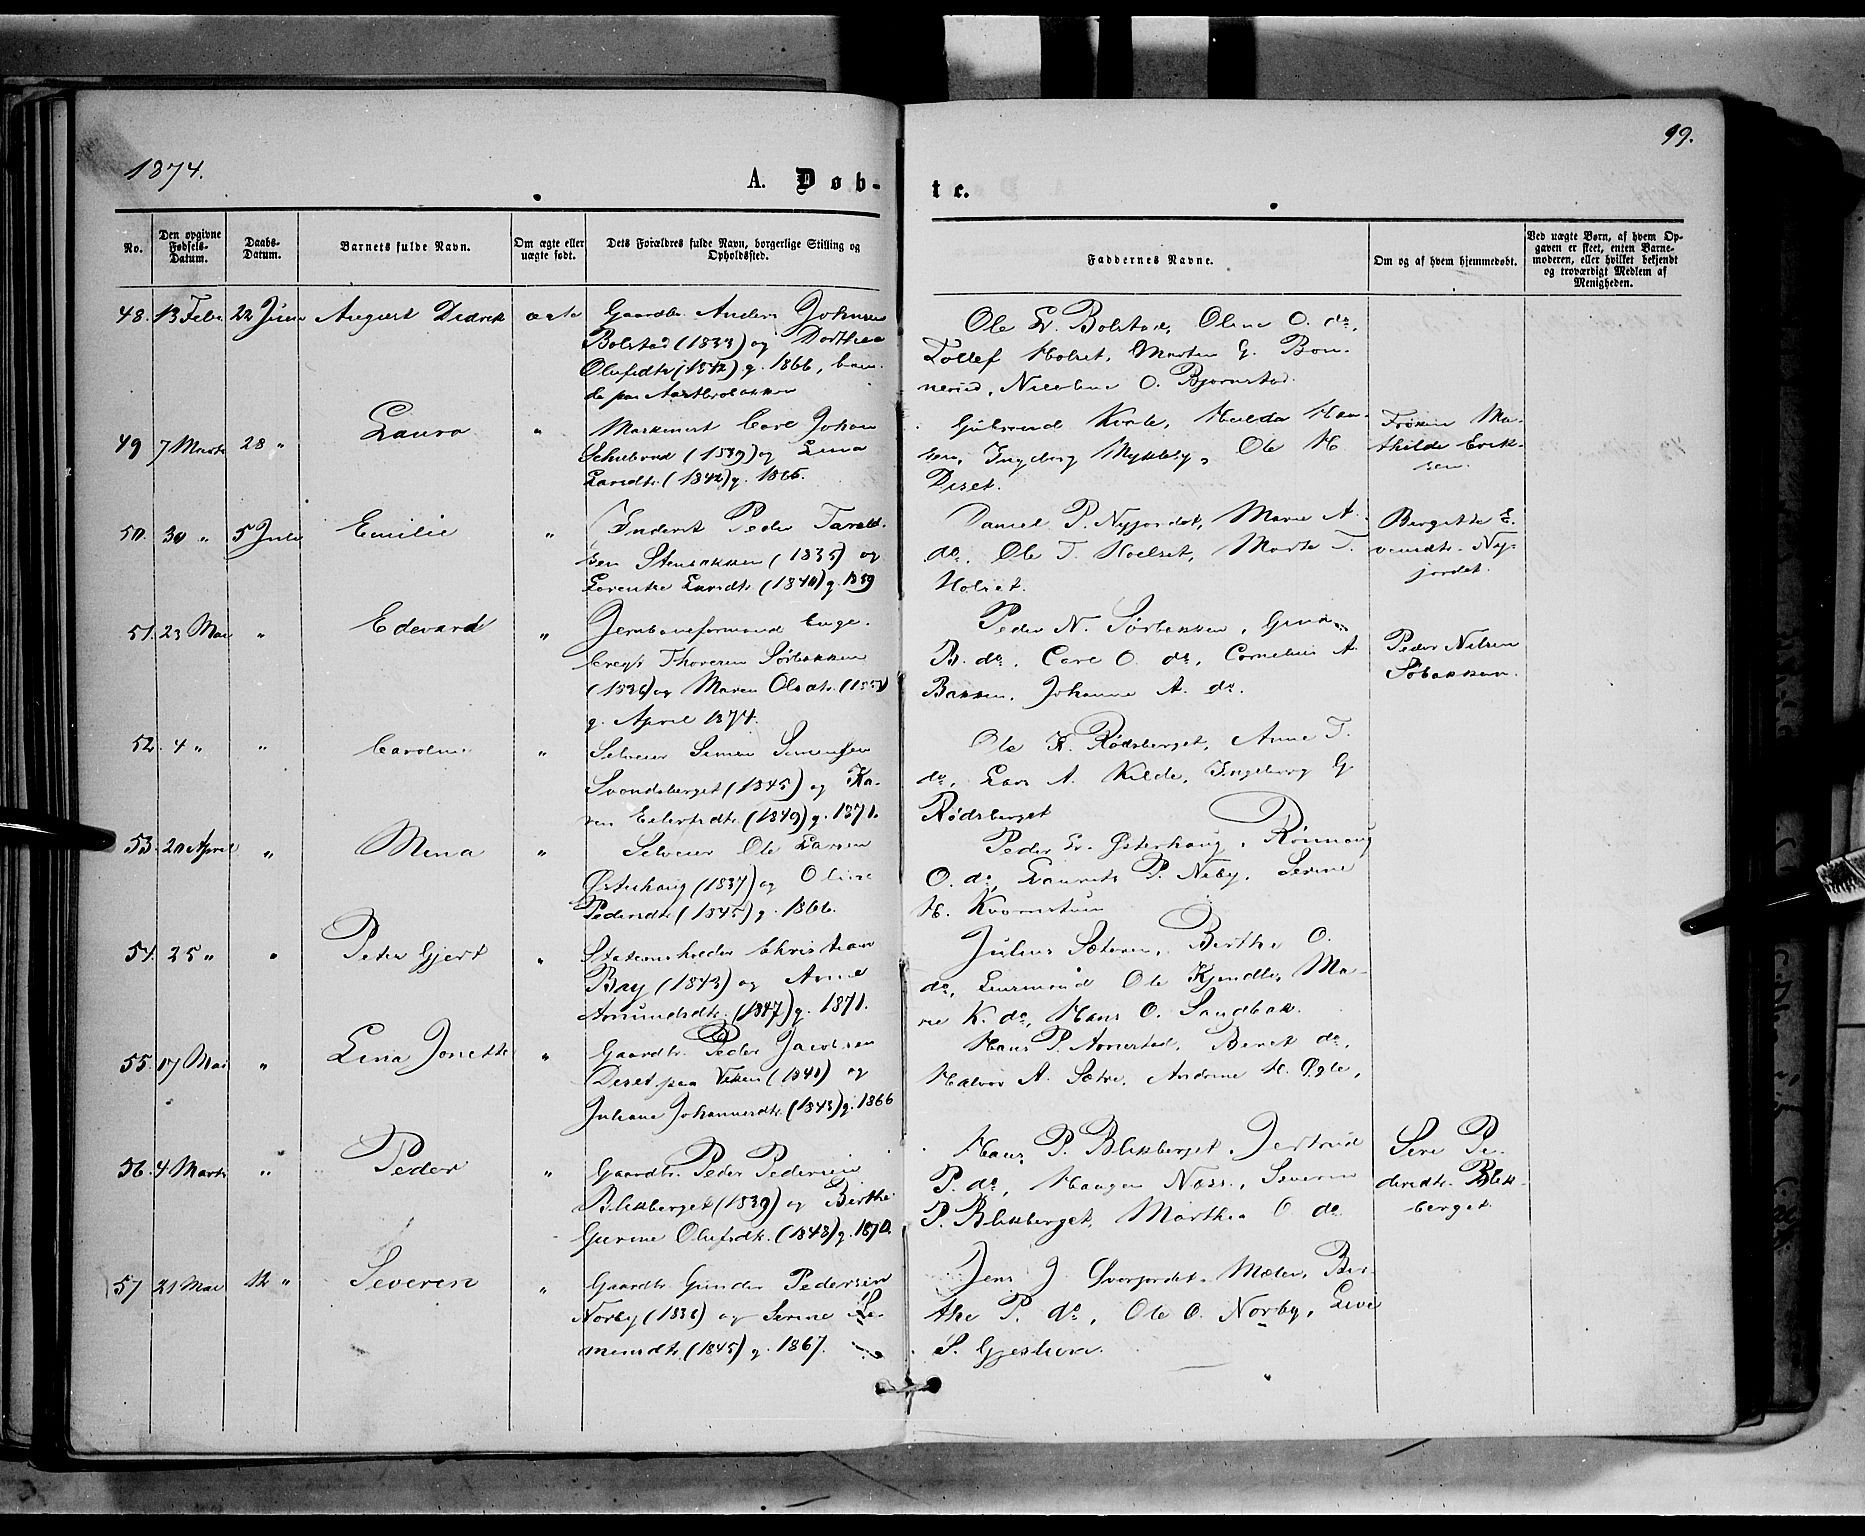 1874.
99.
A. Døb-
te.
No.
Den opgivne Fødsels-Datum.
Daabs-Datum.
Barnets fulde Navn.
Om ægte eller uægte født.
Dets Forældres fulde Navn, borgerlige Stilling og Opholdssted.
Faddernes Navne.
Om og af hvem hjemmedøbt.
Ved uægte Børn, af hvem Opgaven er skeet, enten Barnemoderen, eller hvilket bekjendt og troværdigt Medlem af Menigheden.
48. 13 Febr. 22 Juni August Didrik ægte Gaardbr. Anders Johnsen
Bolstad (1833) og Dorthea
Olufsdtr. (1842) g. 1866, boen-
de paa
Ole E. Bolstad, Oline O. do,
Tollef Holset, Marten G. Bon-
nerud, Nicoline O. Bjørnstad.
49 7 Marts 28 " Laura " Carl Johan
(1839) og Lina
Larsdtr. (1842) g. 1865.
Gulbrand Kvale, Hulda Han-
sen, Ingeborg Mykleby, Ole H.
Diset.
Frøken Ma-
thilde Erik-
sen.
50. 30 " 5 Juli Emilie " Inderst Peder Tarald-
sen Stenbakken (1835) og
Lorentse Larsdtr. (1840) g. 1859
Daniel P. Nyjordet, Marie A.
do, Ole T. Holset, Marte T.
Holset.
Bergitte E-
vensdtr. Ny-
jordet.
51. 23 Mai " Edevard " Jernbaneformand Enge-
bregt Thoresen Sørbakken
(1836) og Maren Olsdtr. (1853)
g. April 1874.
Peder N. Sørbakken,
B. do, Carl O. do, Cornelius A.
Bakken, Johanne A. do.
Peder Nilsen
Søbakken.
52. 4 " " Caroline " Selveier Simen Simensen
Svendsberget (1845) og Ka-
ren Eilertsdtr. (1849) g. 1871.
Ole K. Rødsberget, Anne T.
do, Lars A. Kilde, Ingeborg G
Rødsberget
53. 20 April " Mina " Selveier Ole Larsen
Østerhaug (1837) og Oline
Pedersdtr. (1845) g. 1866.
Peder E. Østerhaug, Rønnaug
O. do, Laurits P. Neby, Serine
H. Kvernstuen
54. 25 " " Peter Gjert " Stationsholder Christian
Bay (1843) og Anne
Amundsdtr. (1847) g. 1871.
Julius Sæteren, Berthe O.
do, Lensmand Ole Kjendlie, Ma-
rie K. do, Hans O. Sandbak.
55. 17 Mai " Lina Jonette " Gaardbr. Peder Jacobsen
Diset paa Viken (1840) og
Juliane Johannesdtr. (1843) g. 1866
Hans P. Arnestad, Beret do,
Halvor A. Sætre, Andrine H. Ogle,
56. 4 Marts " Peder " Gaardbr. Peder Pedersen
Blikberget (1839) og Berthe
Gurine Olufsdtr. (1848) g. 1870.
Hans P. Blikberget, Jertrud
P. do, Haagen Næss, Severin
P. Blikberget, Marthea O. do
Siri Pe-
dersdtr. Blik-
berget.
57 21 Mai 12 " Severin " Gaardbr. Gunder Pedersen
Norby (1836) og Serine Si-
mensdtr. (1845) g. 1867.
Jens J. Sverjordet Mælen, Ber-
the P. do, Ole O. Norby, Live
S. Gjeshen.